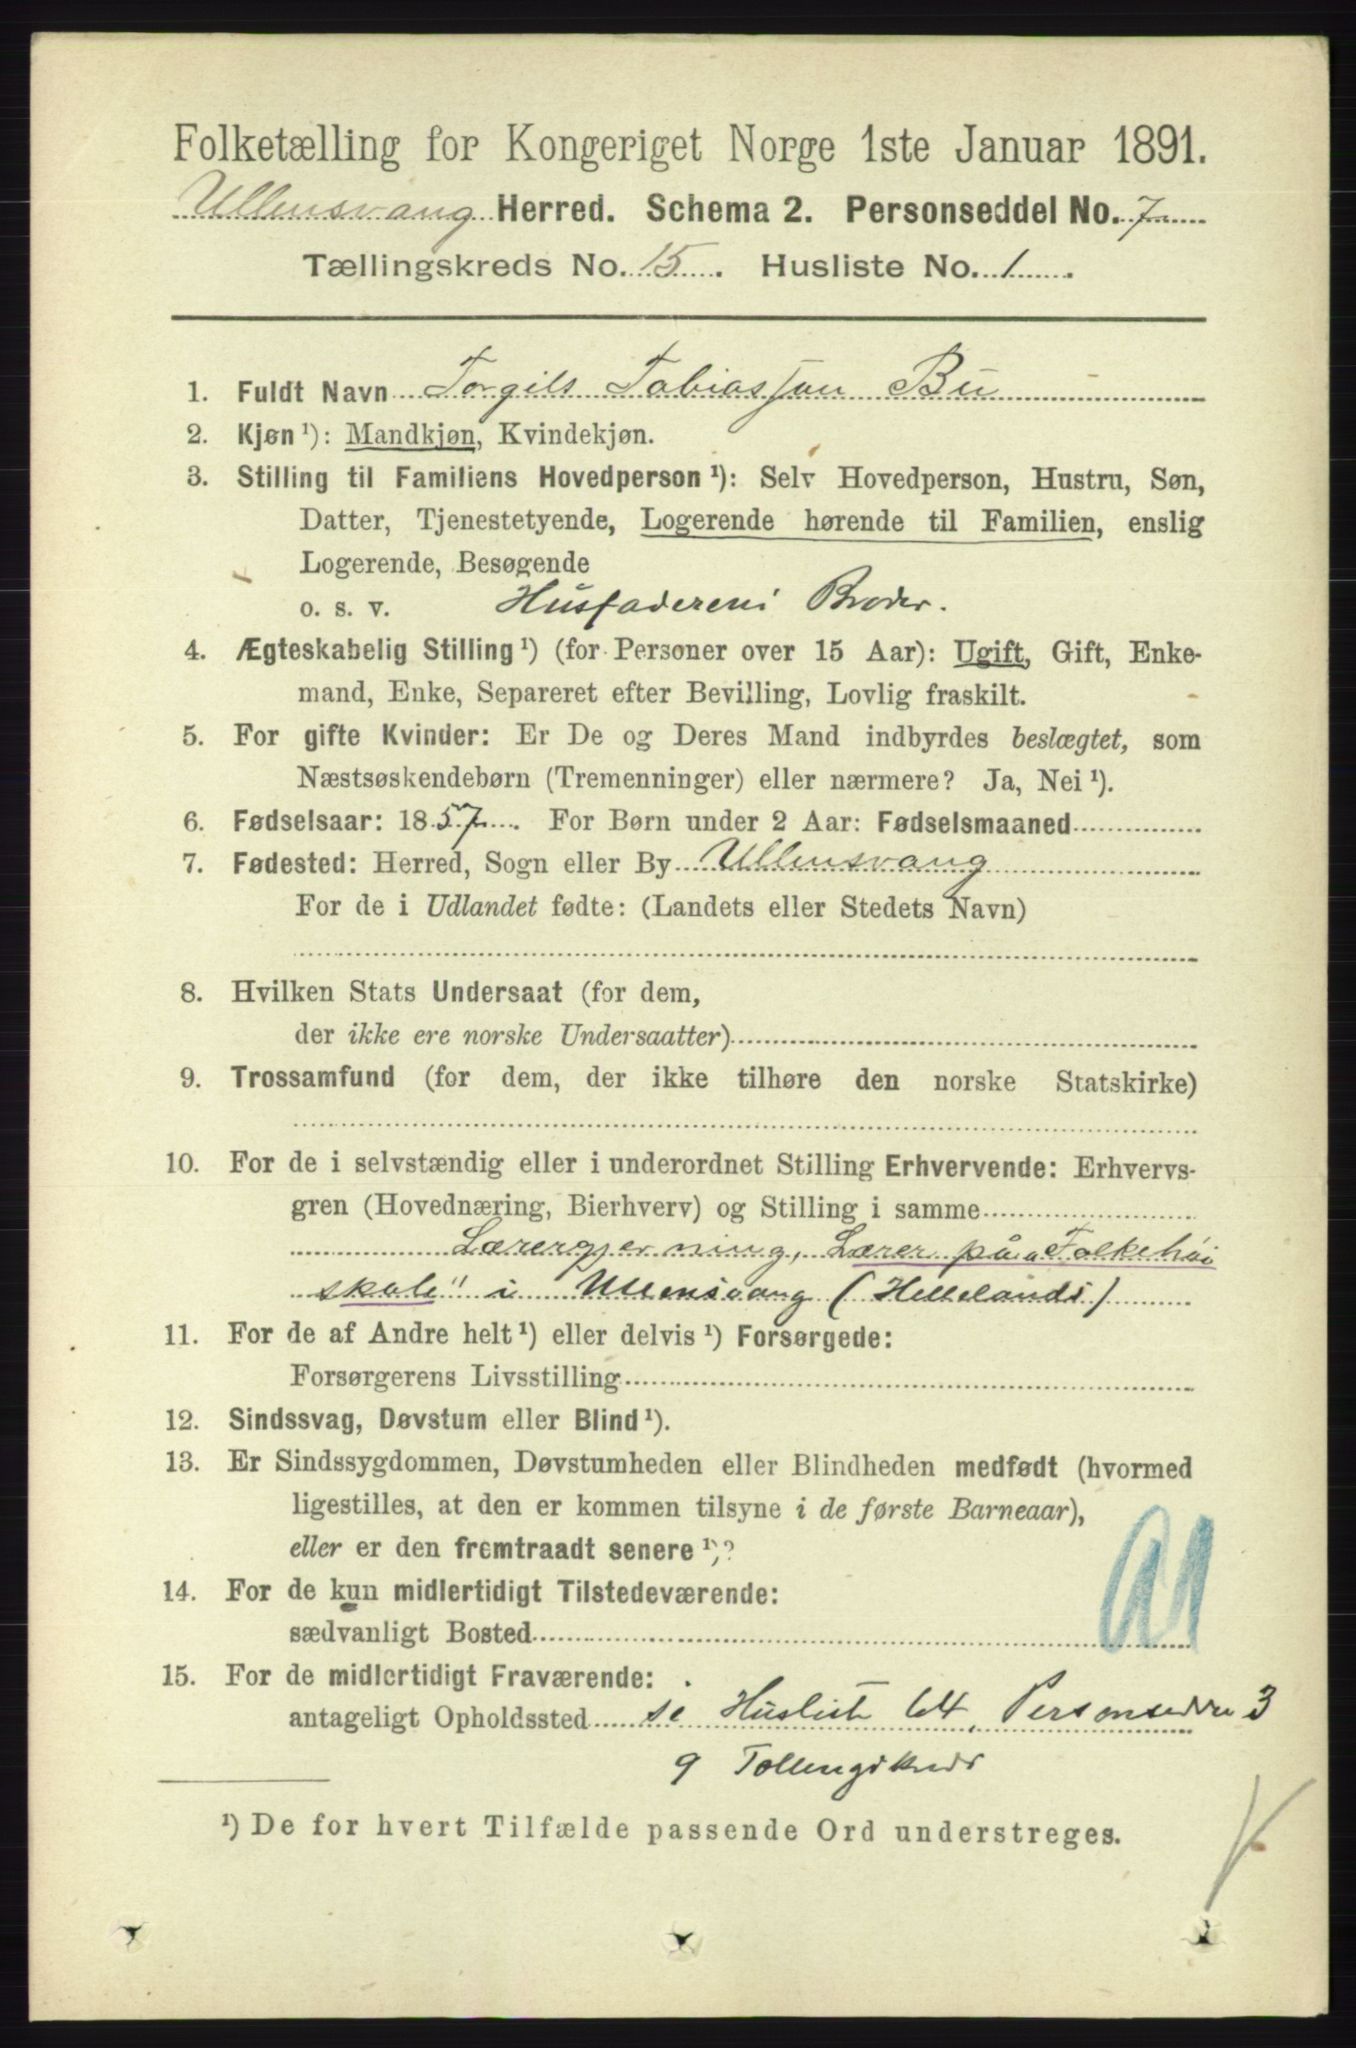 Folketælling for Kongeriget Norge 1ste Januar 1891.
Ullensvang Herred. Schema 2. Personseddel No. 7
Tællingskreds No. 15. Husliste No. 1
1. Fuldt Navn Torgils Tobiassøn Bu
2. Kjøn ¹): Mandkjøn, Kvindekjøn.
3. Stilling til Familiens Hovedperson ¹): Selv Hovedperson, Hustru, Søn,
Datter, Tjenestetyende, Logerende hørende til Familien, enslig
Logerende, Besøgende
o. s. v. Husfaderens Broder.
4. Ægteskabelig Stilling ¹) (for Personer over 15 Aar): Ugift, Gift, Enke-
mand, Enke, Separeret efter Bevilling, Lovlig fraskilt.
5. For gifte Kvinder: Er De og Deres Mand indbyrdes beslægtet, som
Næstsøskendebørn (Tremenninger) eller nærmere? Ja, Nei ¹).
6. Fødselsaar: 1857. For Børn under 2 Aar: Fødselsmaaned
7. Fødested: Herred, Sogn eller By Ullensvang
For de i Udlandet fødte: (Landets eller Stedets Navn)
8. Hvilken Stats Undersaat (for dem,
der ikke ere norske Undersaatter)
9. Trossamfund (for dem, der ikke tilhøre den norske Statskirke)
10. For de i selvstændig eller i underordnet Stilling Erhvervende: Erhvervs-
gren (Hovednæring, Bierhverv) og Stilling i samme
Lærergjerning, Lærer på „Folkehøi
skole" i Ullensvang (Hellelands)
11. For de af Andre helt ¹) eller delvis ¹) Forsørgede:
Forsørgerens Livsstilling
12. Sindssvag, Døvstum eller Blind ¹).
13. Er Sindssygdommen, Døvstumheden eller Blindheden medfødt (hvormed
ligestilles, at den er kommen tilsyne i de første Barneaar),
eller er den fremtraadt senere ¹)?
14. For de kun midlertidigt Tilstedeværende:
sædvanligt Bosted
15. For de midlertidigt Fraværende:
antageligt Opholdssted se Husliste 64, Personseddel 3
9 Tællingskreds
¹) De for hvert Tilfælde passende Ord understreges.